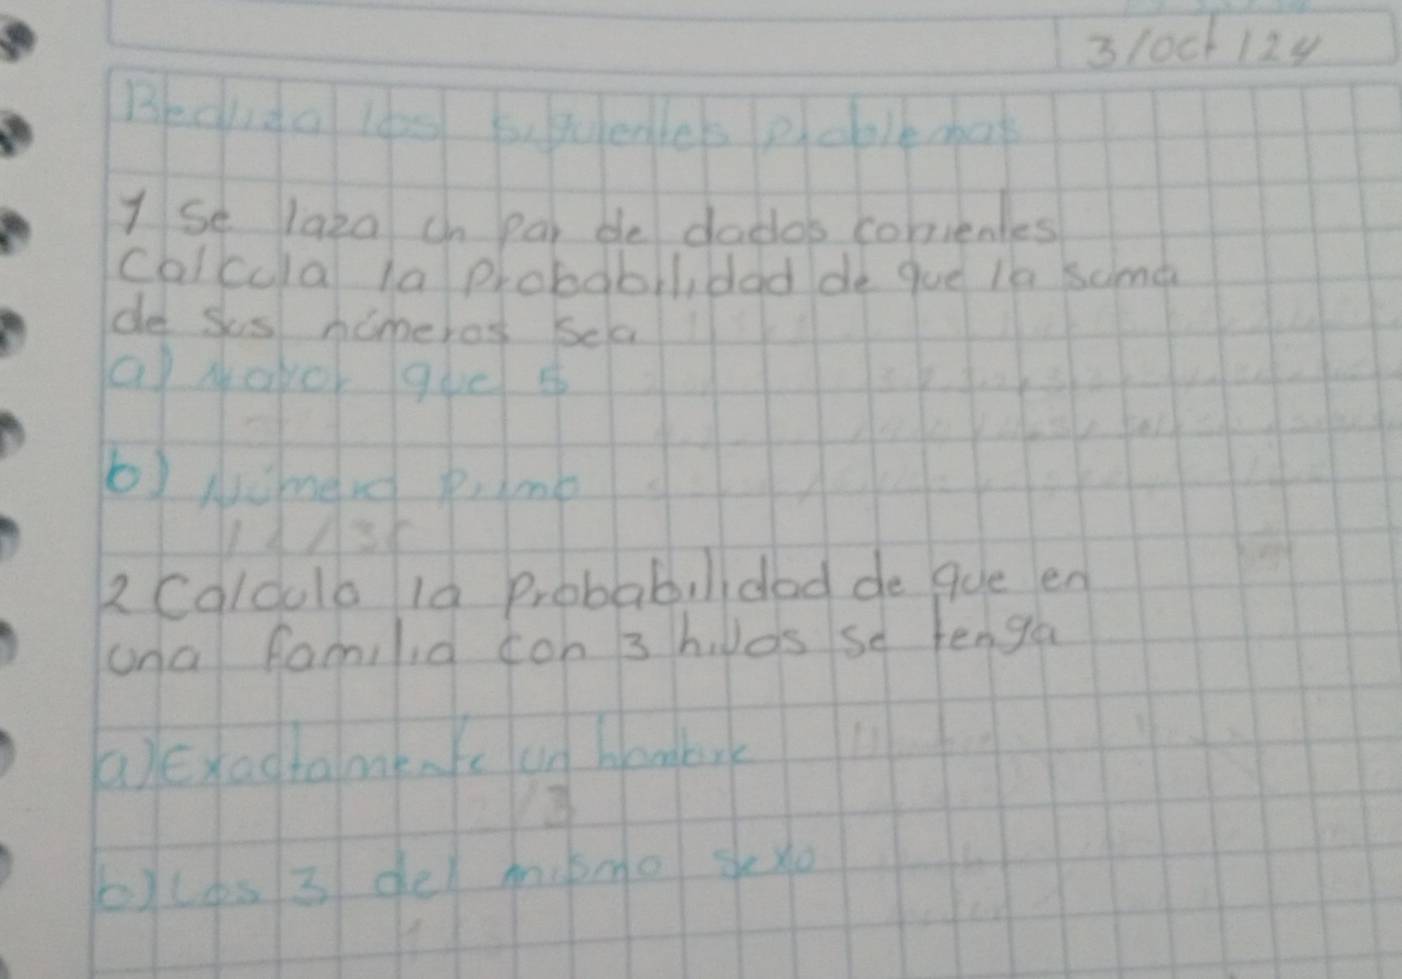 3/oct/24
los siguientes Problemas
1 Se laza un Par de dados corrientes
Calcula la Probabilidad de que la suma
de sus números sea
a) Mayor que 5
b) Número Primo
2 Calcula la Probabilidad de que en
una familia con 3 hijos se tenga
a) Exactamente un hombre
b) Los 3 del mismo sexo